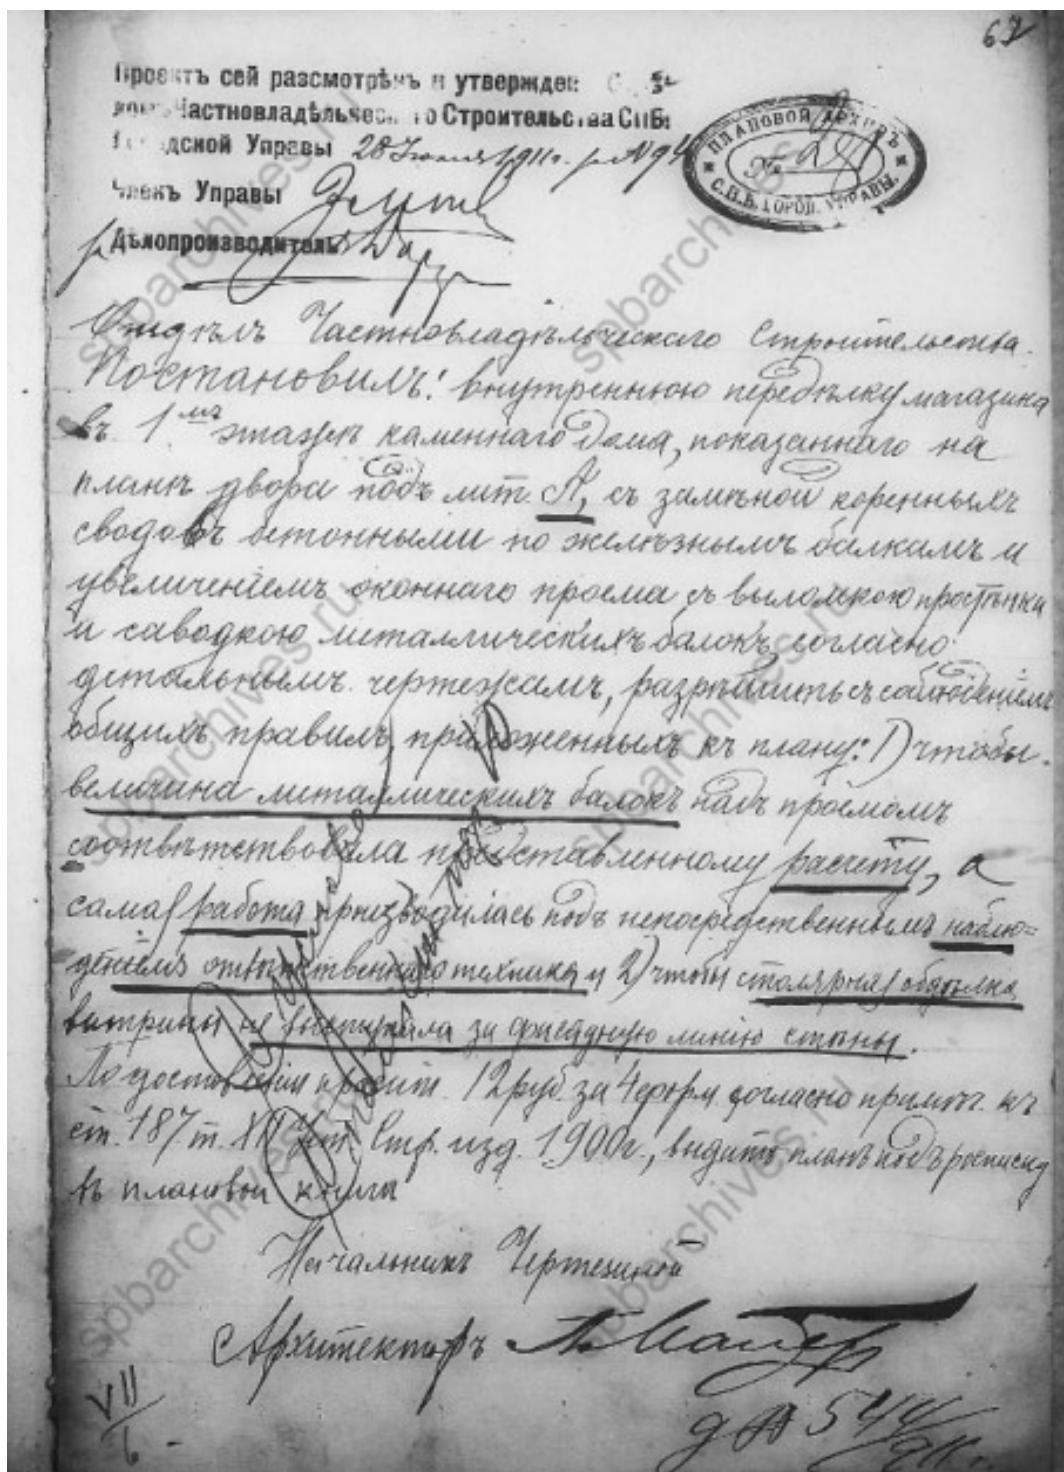 67
Проектъ сей разсмотрѣнъ и утвержден
Частновладѣльческ го Строительства СПБ
дской Управы 28 Іюля 1911 г. № 94
Членъ Управы
Дѣлопроизводитель
ПЛАНОВОЙ АРХИВЪ
№
С.П.Б. ГОРОД. УПРАВЫ.
Отдѣлъ Частновладѣльческаго Строительства.
Постановилъ: внутреннюю передѣлку магазина
въ 1мъ этажѣ каменнаго дома, показаннаго на
планѣ двора подъ лит. А, съ замѣной коренныхъ
сводовъ бетонными по желѣзнымъ балкамъ и
увеличеніемъ оконнаго проема съ выломкою простѣнка
и заводкою металлическихъ балокъ, согласно
детальнымъ чертежамъ, разрѣшить съ соблюденіемъ
общихъ правилъ, приложенныхъ къ плану: 1) чтобы
величина металлическихъ балокъ надъ проемомъ
соотвѣтствовала представленному расчету, а
сама работа производилась подъ непосредственнымъ наблю=
деніемъ отвѣтственнаго техника и 2) чтобы столярная обдѣлка
витрины не выступала за фасадную линію стѣны.
По доставленіи 12 руб. за 4 согласно примѣч. къ
ст. 187 т. XII Уст. Стр. изд. 1900 г., выдать планъ подъ росписку
въ плановой книгѣ
Начальникъ Чертежной
Архитекторъ
VII
6
544